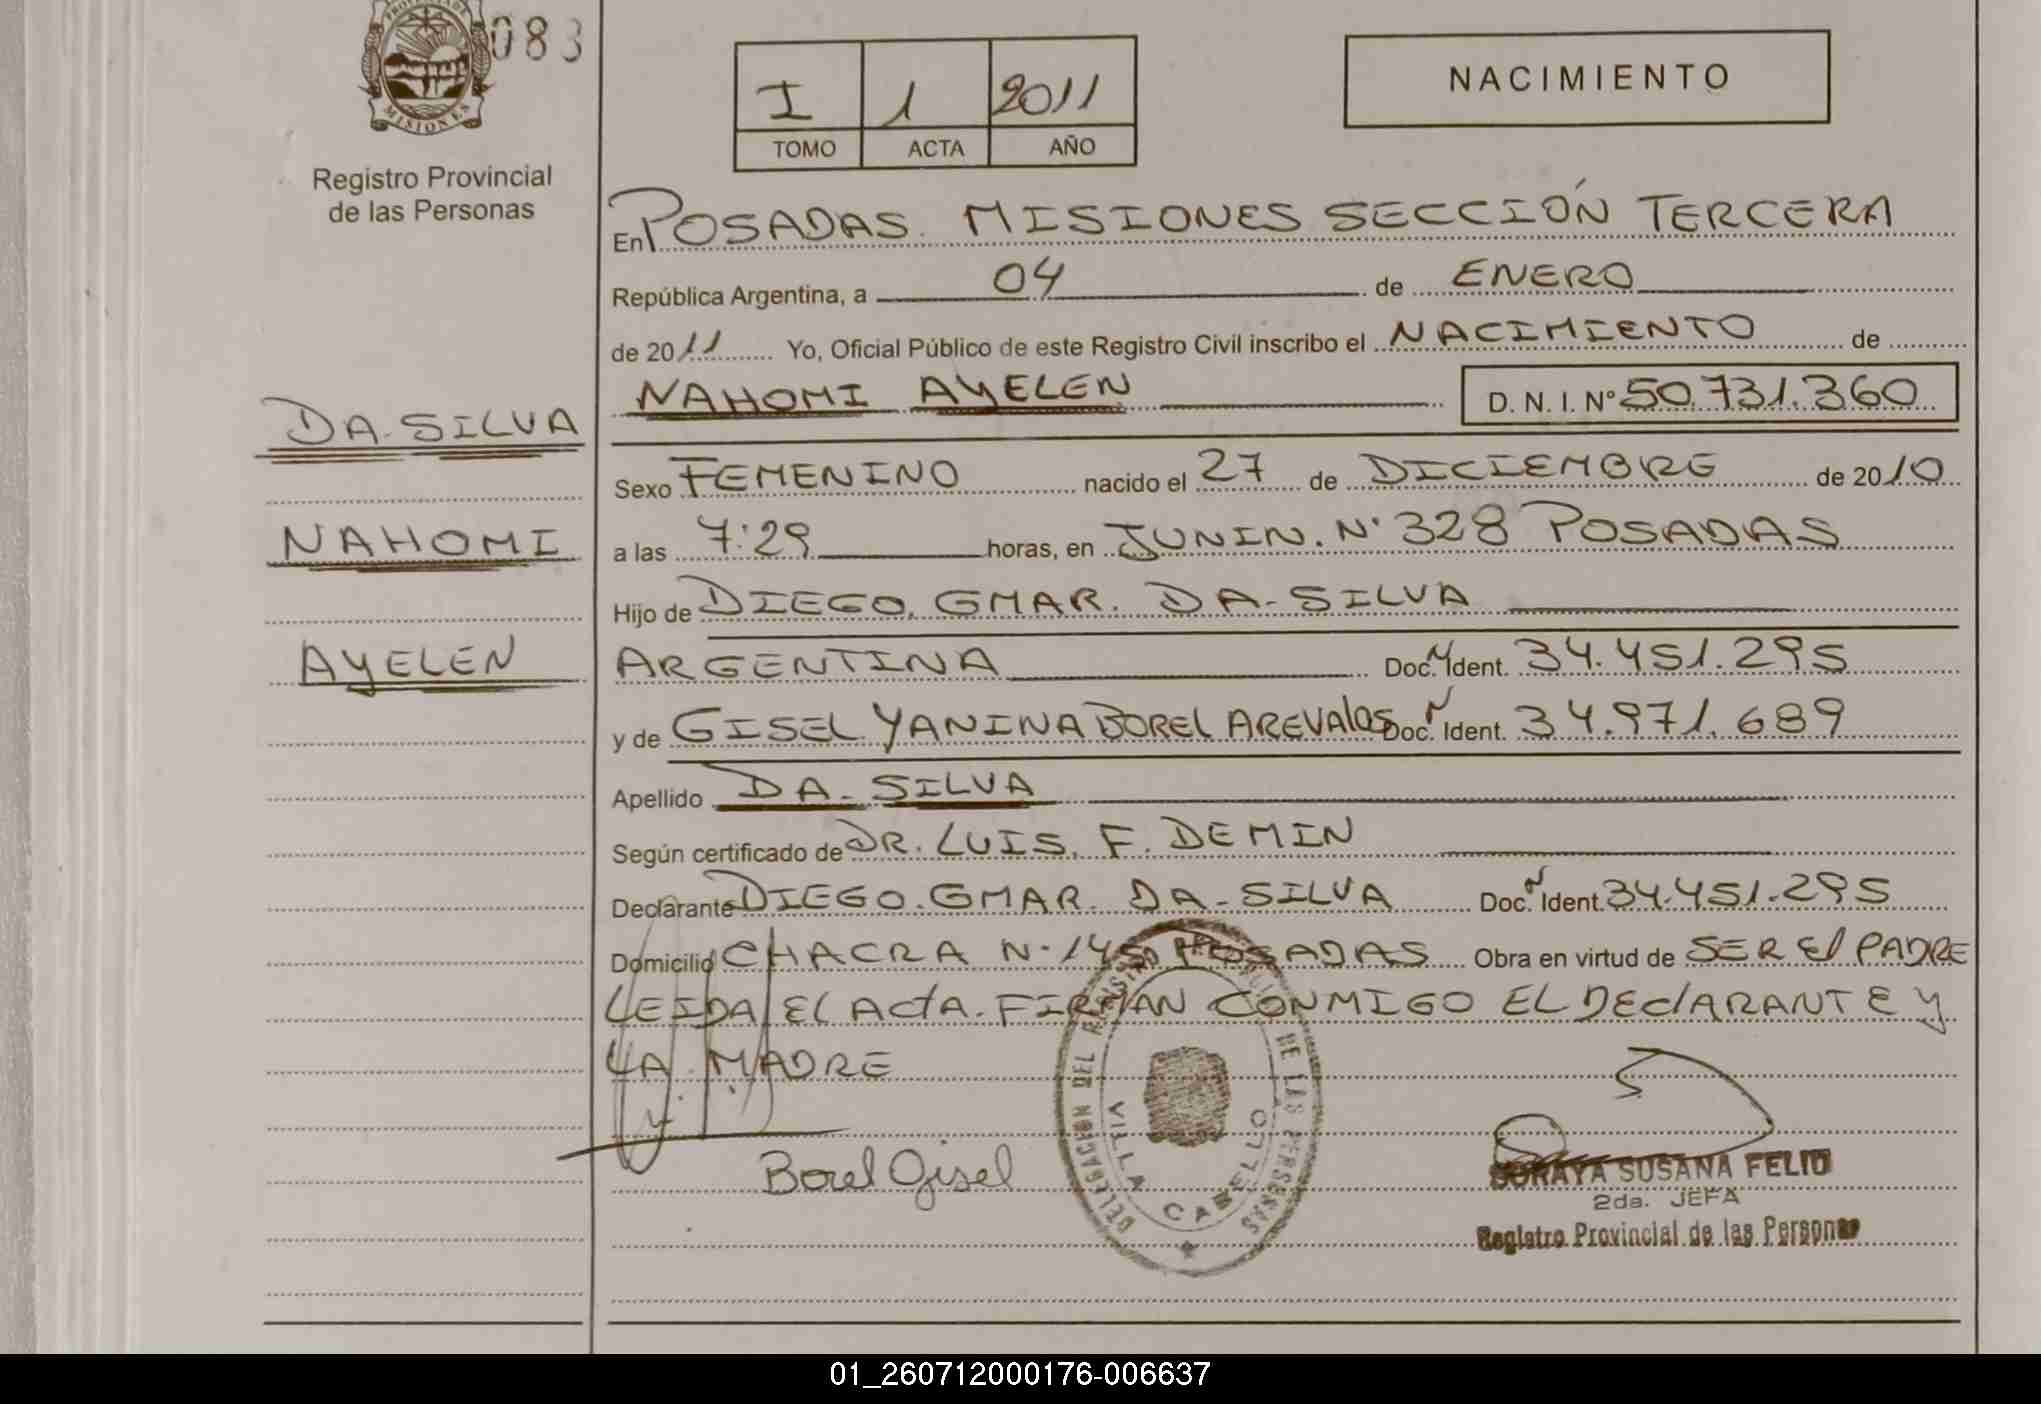 PROVINCIA DE
MISIONES
083
Registro Provincial
de las Personas
I 1 2011
TOMO ACTA AÑO
NACIMIENTO
En POSADAS. MISIONES SECCIÓN TERCERA
República Argentina, a 04 de ENERO
de 2011 Yo, Oficial Público de este Registro Civil inscribo el NACIMIENTO de
NAHOMI AYELEN D. N. I. N° 50.731.360
DA-SILVA
NAHOMI
AYELEN
Sexo FEMENINO nacido el 27 de DICIEMBRE de 2010
a las 7:29 horas, en JUNIN. N° 328 POSADAS
Hijo de DIEGO. GMAR. DA-SILVA
ARGENTINA Doc. N Ident. 34.451.295
y de GISEL YANINA BOREL AREVALOS Doc. N Ident. 34.971.689
Apellido DA-SILVA
Según certificado de DR. LUIS. F. DEMIN
Declarante DIEGO. GMAR. DA-SILVA Doc. N Ident. 34.451.295
Domicilio CHACRA N-145 POSADAS Obra en virtud de SER El PADRE
LEIDA El ActA. FIRMAN CONMIGO EL DEClARANTE y
LA MADRE
Borel Gisel
DELEGACION DEL REGISTRO PROVINCIAL DE LAS PERSONAS
VILLA CABELLO
SORAYA SUSANA FELIU
2da. JEFA
Registro Provincial de las Personas
01_260712000176-006637